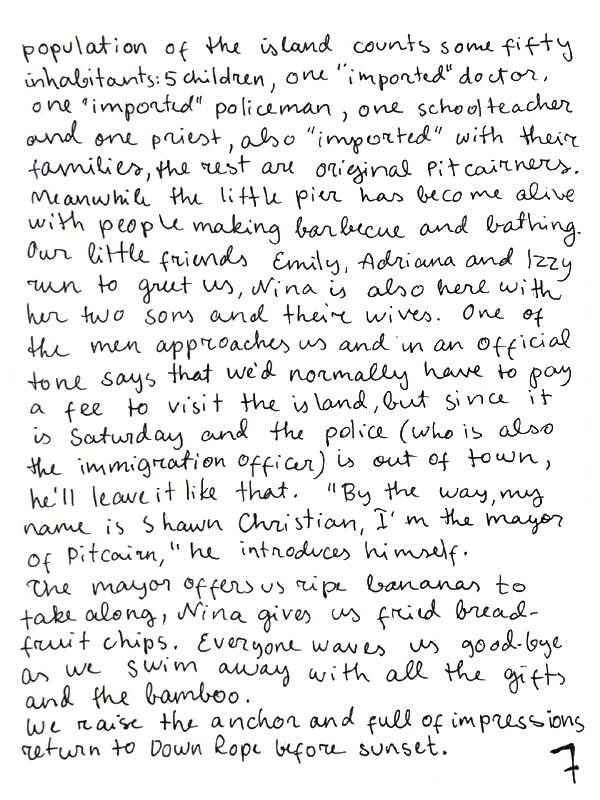 population of the island counts some fifty
inhabitants: 5 children, one "imported" doctor,
one "imported" policeman, one schoolteacher
and one priest, also "imported" with their
families, the rest are original Pitcairners.
Meanwhile the little pier has become alive
with people making barbecue and bathing.
Our little friends Emily, Adriana and Izzy
run to greet us, Nina is also here with
her two sons and their wives. One of
the men approaches us and in an official
tone says that we'd normally have to pay
a fee to visit the island, but since it
is Saturday and the police (who is also
the immigration officer) is out of town,
he'll leave it like that. "By the way, my
name is Shawn Christian, I'm the mayor
of Pitcairn," he introduces himself.
The mayor offers us ripe bananas to
take along, Nina gives us fried bread-
fruit chips. Everyone waves us good-bye
as we swim away with all the gifts
and the bamboo.
We raise the anchor and full of impressions
return to Down Rope before sunset.
7